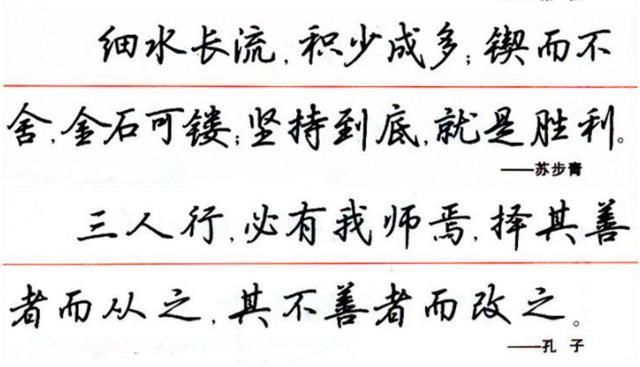 细水长流,积少成多;锲而不
舍,金石可镂;坚持到底,就是胜利。
——苏步青
三人行,必有我师焉,择其善
者而从之,其不善者而改之。
——孔 子